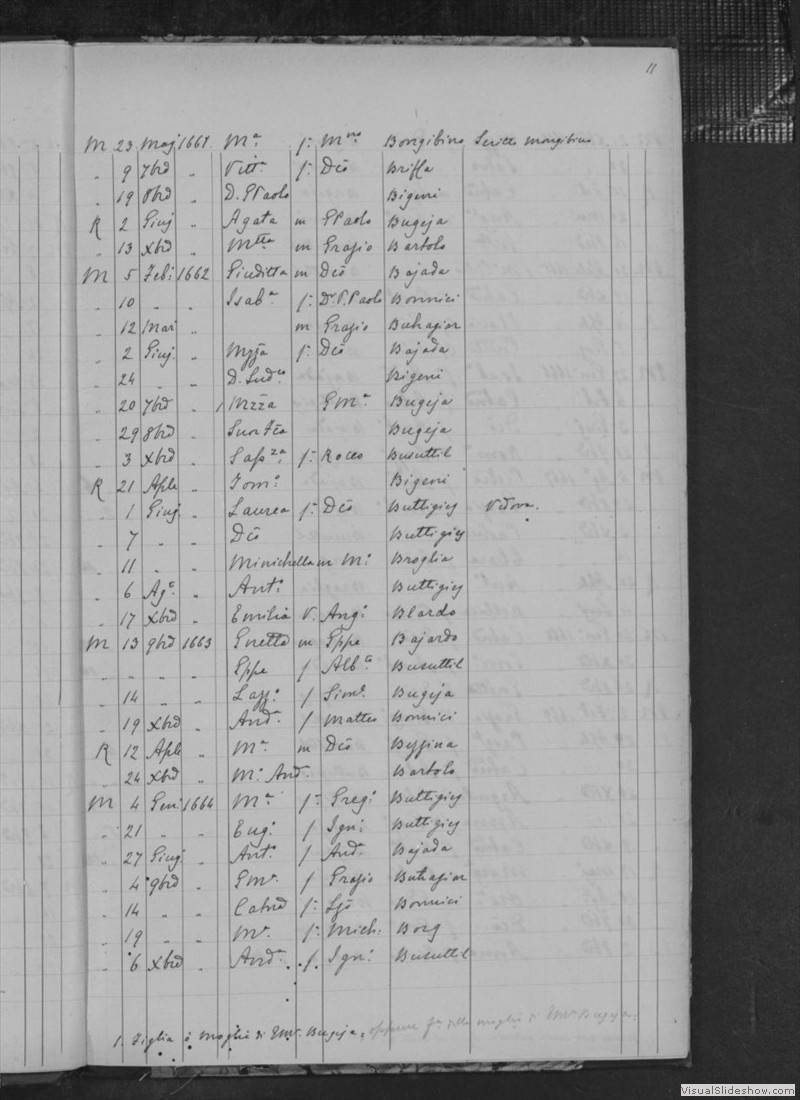 11
M 23 Maj 1661 Mª f: Mro Bongibino Scritto mongibino
" 9 7brd " Vittª f: Dco Briffa
" 19 8brd " D. GPaolo Bigeni
R 2 Giuj " Agata m GPaolo Bugeja
" 13 Xbrd " Mtta m Grasio Bartolo
M 5 Feb: 1662 Giuditta m Dco Bajada
" 10 " " Isabª f: Dr. P. Paolo Bonnici
" 12 Mar " m Grasio Buhagiar
" 2 Giuj. " f: Dco Bajada
" 24 " " D. Ludco Bigeni
" 20 7brd " 1 Mzza GMª Bugeja
" 29 8brd " Bugeja
" 3 Xbrd " f: Rocco Busuttil
R 21 Aple " Tomº Bigeni
" 1 Giuj " Laurea f: Dco Buttigieg Vedova.
" 7 " " Dco Buttigieg
" 11 " " Minichella m Mº Broglia
" 6 Agº " Antº Buttigieg
" 17 Xbrd " Emilia V. Angº Blardo
M 13 9brd 1663 Gnetta m Gppe Bajardo
" " " " Gppe f Albto Busuttil
" 14 " " f Simº Bugeja
" 19 Xbrd " Andª f Matteo Bonnici
R 12 Aple " Mª m Dco
" 24 Xbrd " Mº And. Bartolo
M 4 Gen: 1664 Mª f: Gregº Buttigieg
" 21 " " Eugº f Ignº Buttigieg
" 27 Giuj " Antº f And. Bajada
" 4 9brd " GMª f Grasio Buhagiar
" 14 " " Catrd f: Bonnici
" 19 " " Mª f: Mich: Borg
" 6 Xbrd " Andª f. Ignº Busuttil
1. Figlia o moglie di GMª Bugeja, oppure fª della moglie di GMª Bugeja.
VisualSlideshow.com